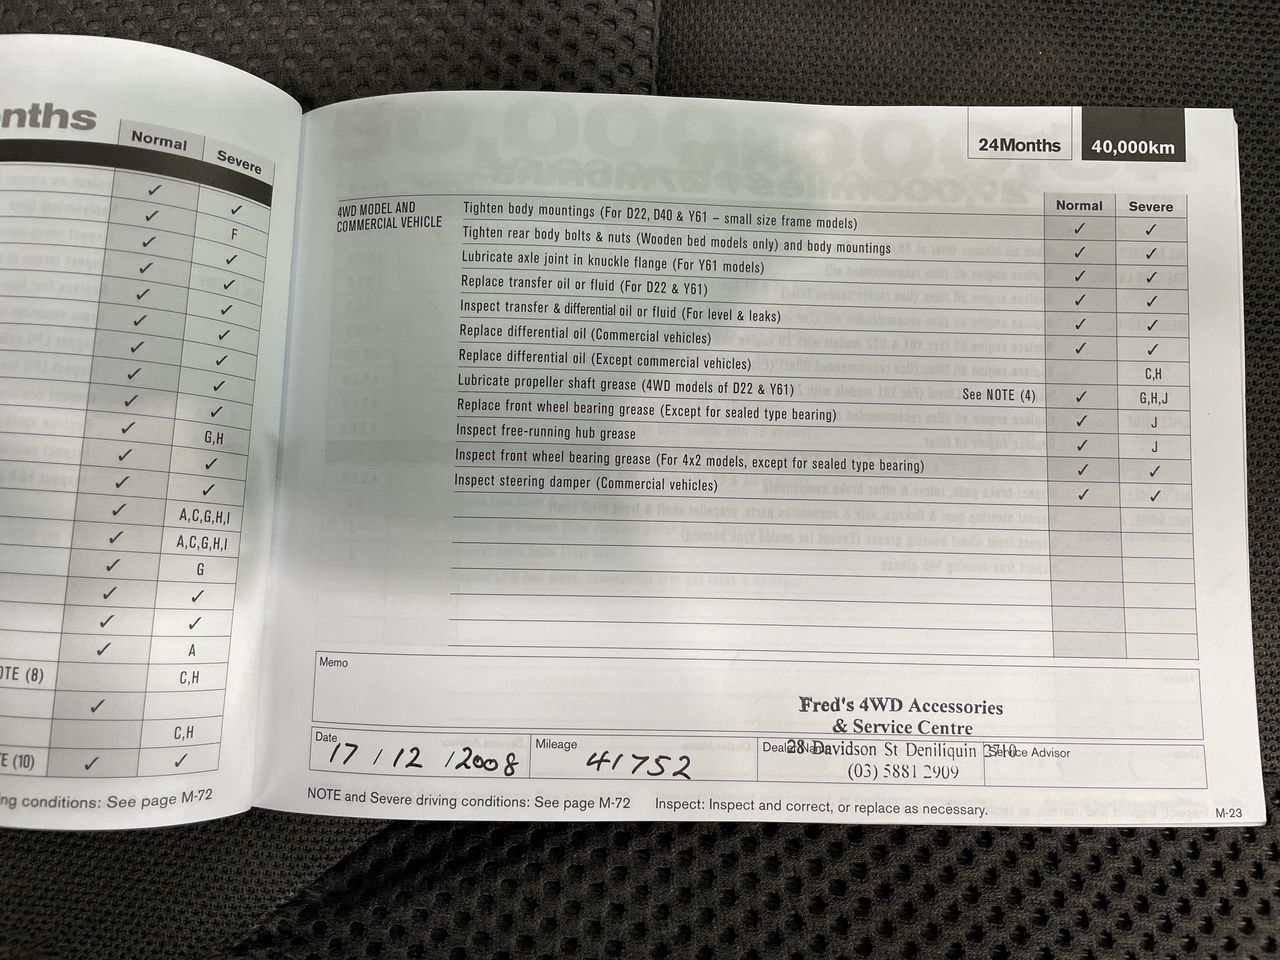 nths
Normal Severe
✓ ✓
✓ F
✓ ✓
✓ ✓
✓ ✓
✓ ✓
✓ ✓
✓ ✓
✓ ✓
✓ G,H
✓ ✓
✓ ✓
✓ A,C,G,H,I
✓ A,C,G,H,I
✓ G
✓ ✓
✓ ✓
✓ A
OTE (8) C,H
✓
C,H
E (10) ✓ ✓
ng conditions: See page M-72
24Months 40,000km
Normal Severe
4WD MODEL AND
COMMERCIAL VEHICLE
Tighten body mountings (For D22, D40 & Y61 – small size frame models) ✓ ✓
Tighten rear body bolts & nuts (Wooden bed models only) and body mountings ✓ ✓
Lubricate axle joint in knuckle flange (For Y61 models) ✓ ✓
Replace transfer oil or fluid (For D22 & Y61) ✓ ✓
Inspect transfer & differential oil or fluid (For level & leaks) ✓ ✓
Replace differential oil (Commercial vehicles) ✓ ✓
Replace differential oil (Except commercial vehicles) C,H
Lubricate propeller shaft grease (4WD models of D22 & Y61) See NOTE (4) ✓ G,H,J
Replace front wheel bearing grease (Except for sealed type bearing) ✓ J
Inspect free-running hub grease ✓ J
Inspect front wheel bearing grease (For 4x2 models, except for sealed type bearing) ✓ ✓
Inspect steering damper (Commercial vehicles) ✓ ✓
Memo
Fred's 4WD Accessories
& Service Centre
28 Davidson St Deniliquin 2710
(03) 5881 2909
Date 17 / 12 / 2008
Mileage 41752
Dealer Name
Service Advisor
NOTE and Severe driving conditions: See page M-72 Inspect: Inspect and correct, or replace as necessary.
M-23